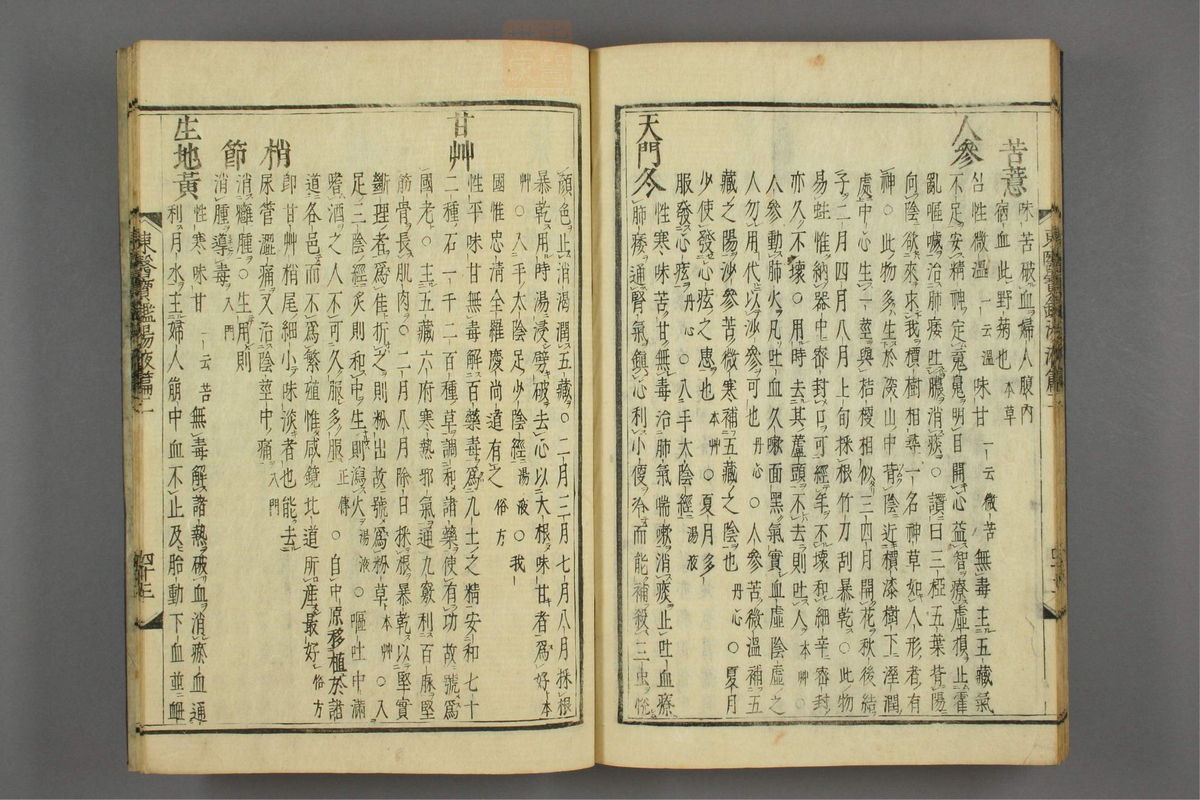 苦薏
味苦破血婦人腹內
宿血此野菊也本草
人參
심性微溫一云溫味甘一云微苦無毒主五藏氣
不足安精神定䰟魄明目開心益智療虛損止霍
亂嘔噦治肺痿吐膿消痰○讚曰三椏五葉背陽
向陰欲來求我檟樹相尋一名神草如人形者有
神○此物多生於深山中背陰近檟漆樹下溼潤
處中心生一莖與桔梗相似三四月開花秋後結
子二月四月八月上旬採根竹刀刮暴乾○此物
易蛀惟納器中密封口可經年不壞和細辛密封
亦久不壞○用時去其蘆頭不去則吐人本艸○
人參動肺火凡吐血久嗽面黑氣實血虛陰虛之
人勿用代以沙參可也丹心○人參苦微溫補五
藏之陽沙參苦微寒補五藏之陰也丹心○夏月
少使發心痃之患也本艸○夏月多
服發心痃丹心○入手太陰經湯液
天門冬
性寒味苦甘無毒治肺氣喘嗽消痰止吐血療
肺痿通腎氣鎭心利小便冷而能補殺三虫悅
顏色止消渴潤五藏○二月三月七月八月採根
暴乾用時湯浸劈破去心以大根味甘者爲好本
艸○入手太陰足少陰經湯液○我
國惟忠淸全羅慶尚道有之俗方
甘艸
性平味甘無毒解百藥毒爲九土之精安和七十
二種石一千二百種草調和諸藥使有功故號爲
國老○主五藏六府寒熱邪氣通九竅利百脉堅
筋骨長肌肉○二月八月除日採根暴乾以堅實
斷理者爲佳折之則粉出故號爲粉草本艸○入
足三陰經炙則和中生則瀉火湯液○嘔吐中滿
嗜酒之人不可久服多服正傳○自中原移植於諸
道各邑而不爲繁殖惟咸鏡北道所產最好俗方
梢
卽甘艸梢尾細小味淡者也能去
尿管澁痛又治陰莖中痛入門
節
消癰腫○生用則
消腫導毒入門
生地黃
性寒味甘一云苦無毒解諸熱破血消瘀血通
利月水主婦人崩中血不止及胎動下血並衄
東醫寶鑑湯液篇二